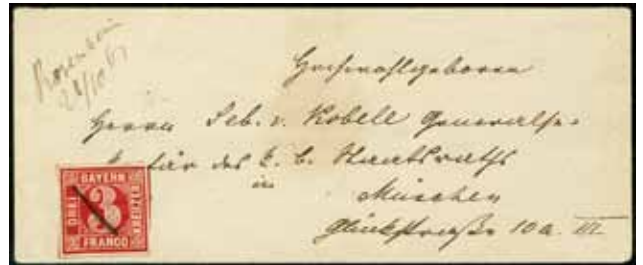 Rosenheim
21/10 67
Hochwohlgeboren
Herrn Seb. v. Kobell Generalse-
kretär des k. b. Staatsraths
in
München
Glückstraße 10a. III.
BAYERN
DREI
3
KREUZER
FRANCO